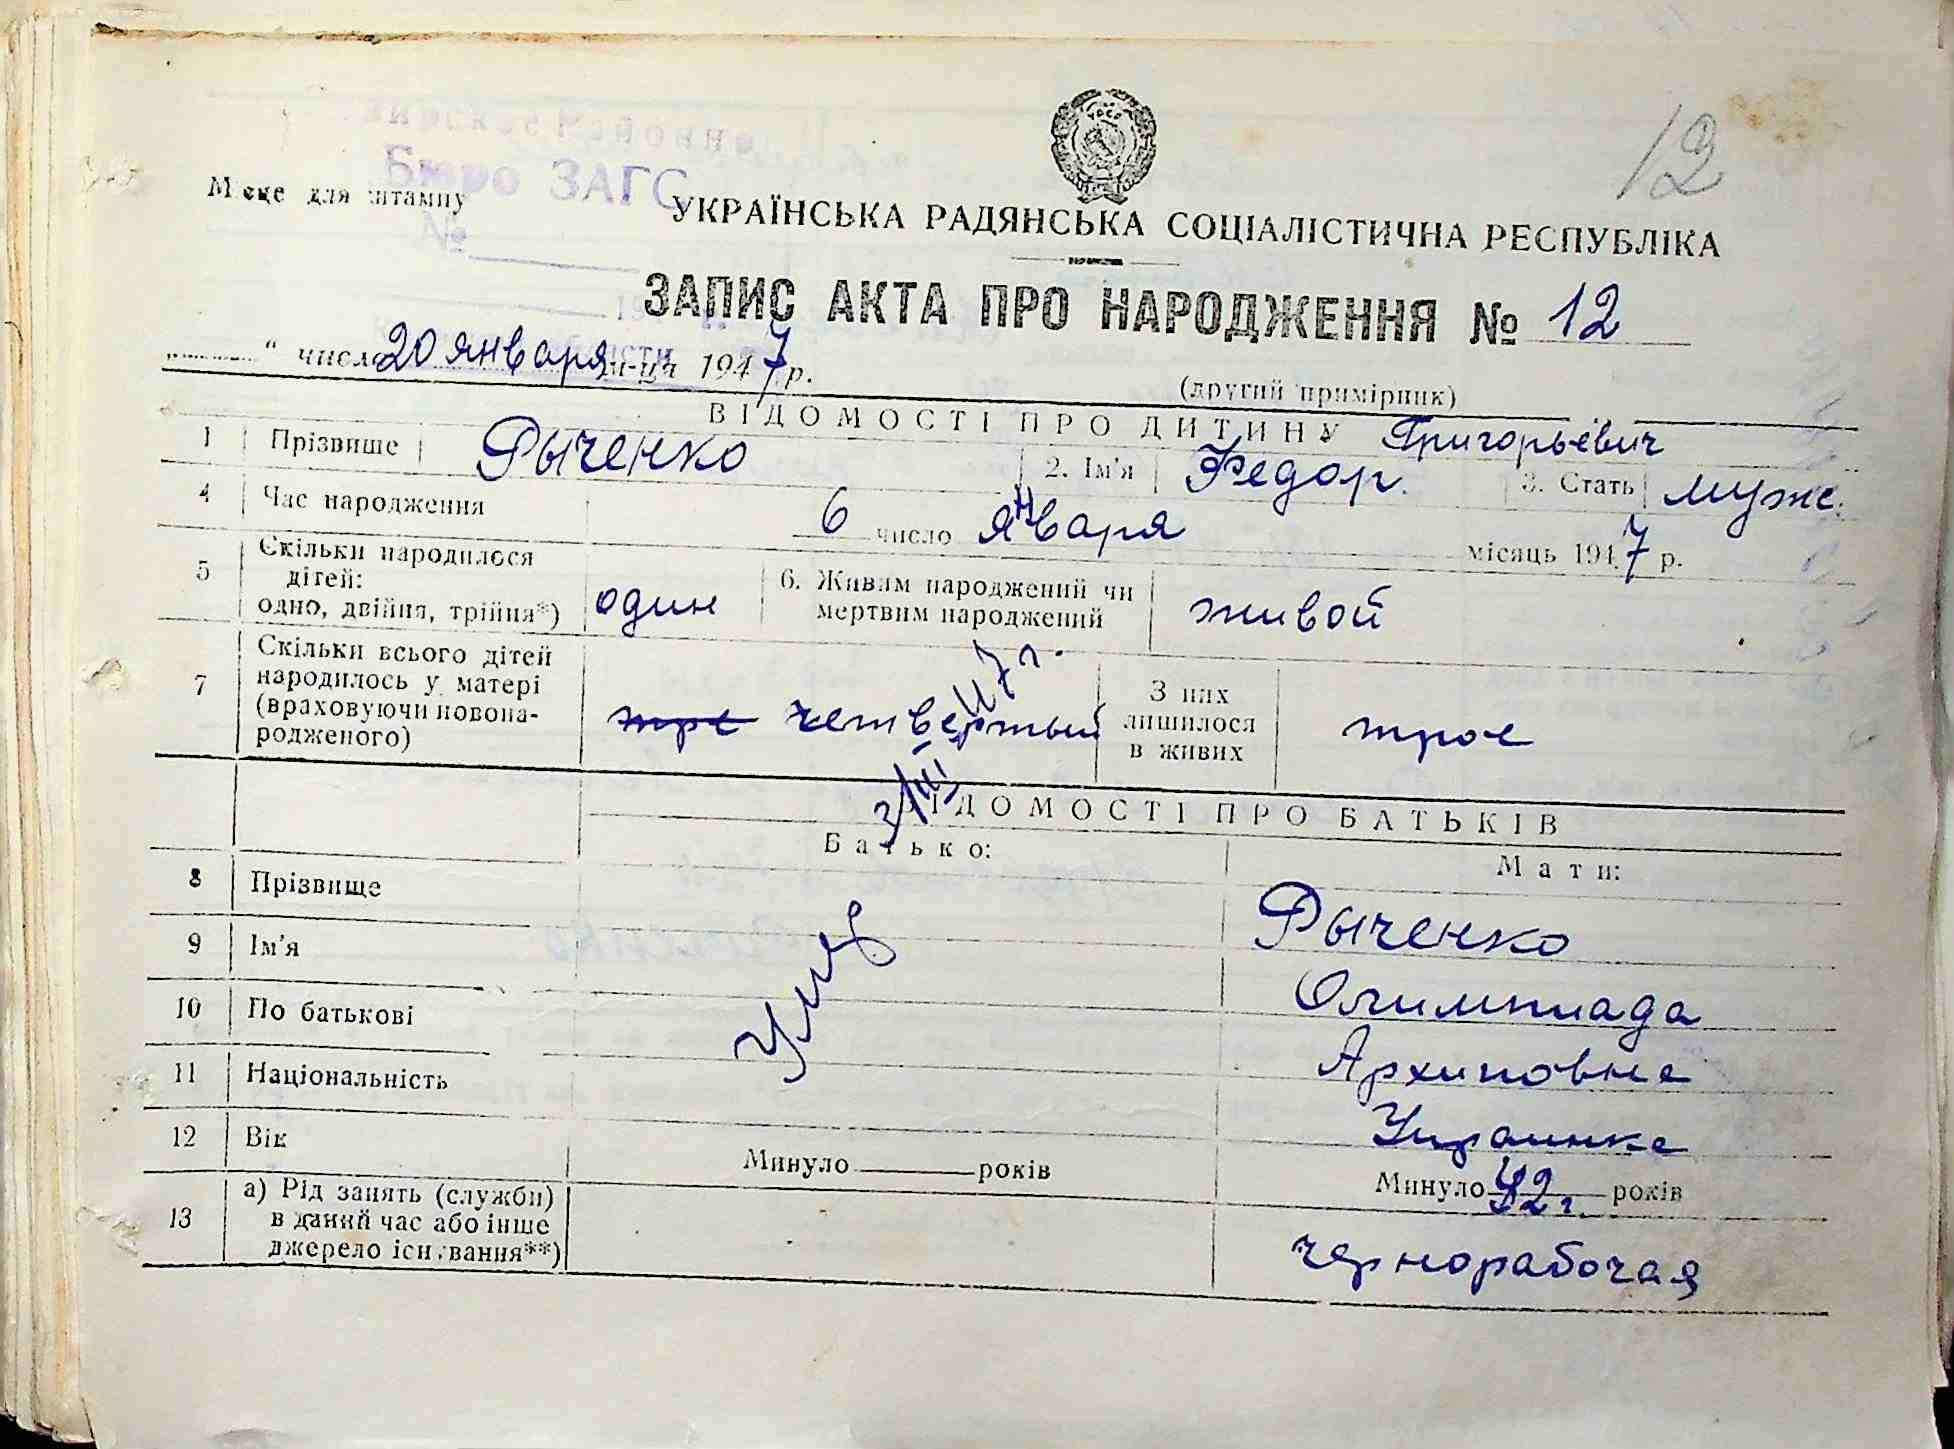 12
Районне
Бюро ЗАГС
Місце для штампу
№
УКРАЇНСЬКА РАДЯНСЬКА СОЦІАЛІСТИЧНА РЕСПУБЛІКА
ЗАПИС АКТА ПРО НАРОДЖЕННЯ № 12
„ “ число 20 января м-ця 1947 р.
(другий примірник)
ВІДОМОСТІ ПРО ДИТИНУ
Григорьевич
1 Прізвище Рыченко 2. Ім'я Федор. 3. Стать муж.
4 Час народження 6 число января місяць 1947 р.
5 Скільки народилося
дітей:
одно, двійня, трійня*) один 6. Живим народжений чи
мертвим народжений живой
7 Скільки всього дітей
народилось у матері
(враховуючи новона-
родженого) тре четвертый З них
лишилося
в живих трое
3/III 47 г.
ВІДОМОСТІ ПРО БАТЬКІВ
Батько: Мати:
8 Прізвище Рыченко
9 Ім'я Олимпиада
10 По батькові Архиповна
11 Національність Украинка
12 Вік Минуло років Минуло 42 г. років
13 а) Рід занять (служби)
в даний час або інше
джерело існування**) чернорабочая